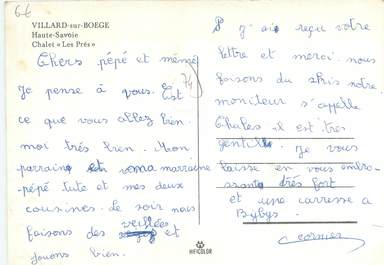 6€
VILLARD-sur-BOEGE
Haute-Savoie
Chalet « Les Prés »
Chers pépé et mémé
Je pense à vous. Est
74
ce que vous allez bien.
moi très bien. Mon
parrain et ma marraine
pépé tute et mes deux
cousines. Le soir nous
faisons des veillées et
jouons bien.
HIFICOLOR
P J'ai reçu votre
lettre et merci. nous
faisons du skis notre
moniteur s'appelle
Charles il est très
gentil. Je vous
laisse en vous embra-
ssant très fort
et une caresse a
Bybys.